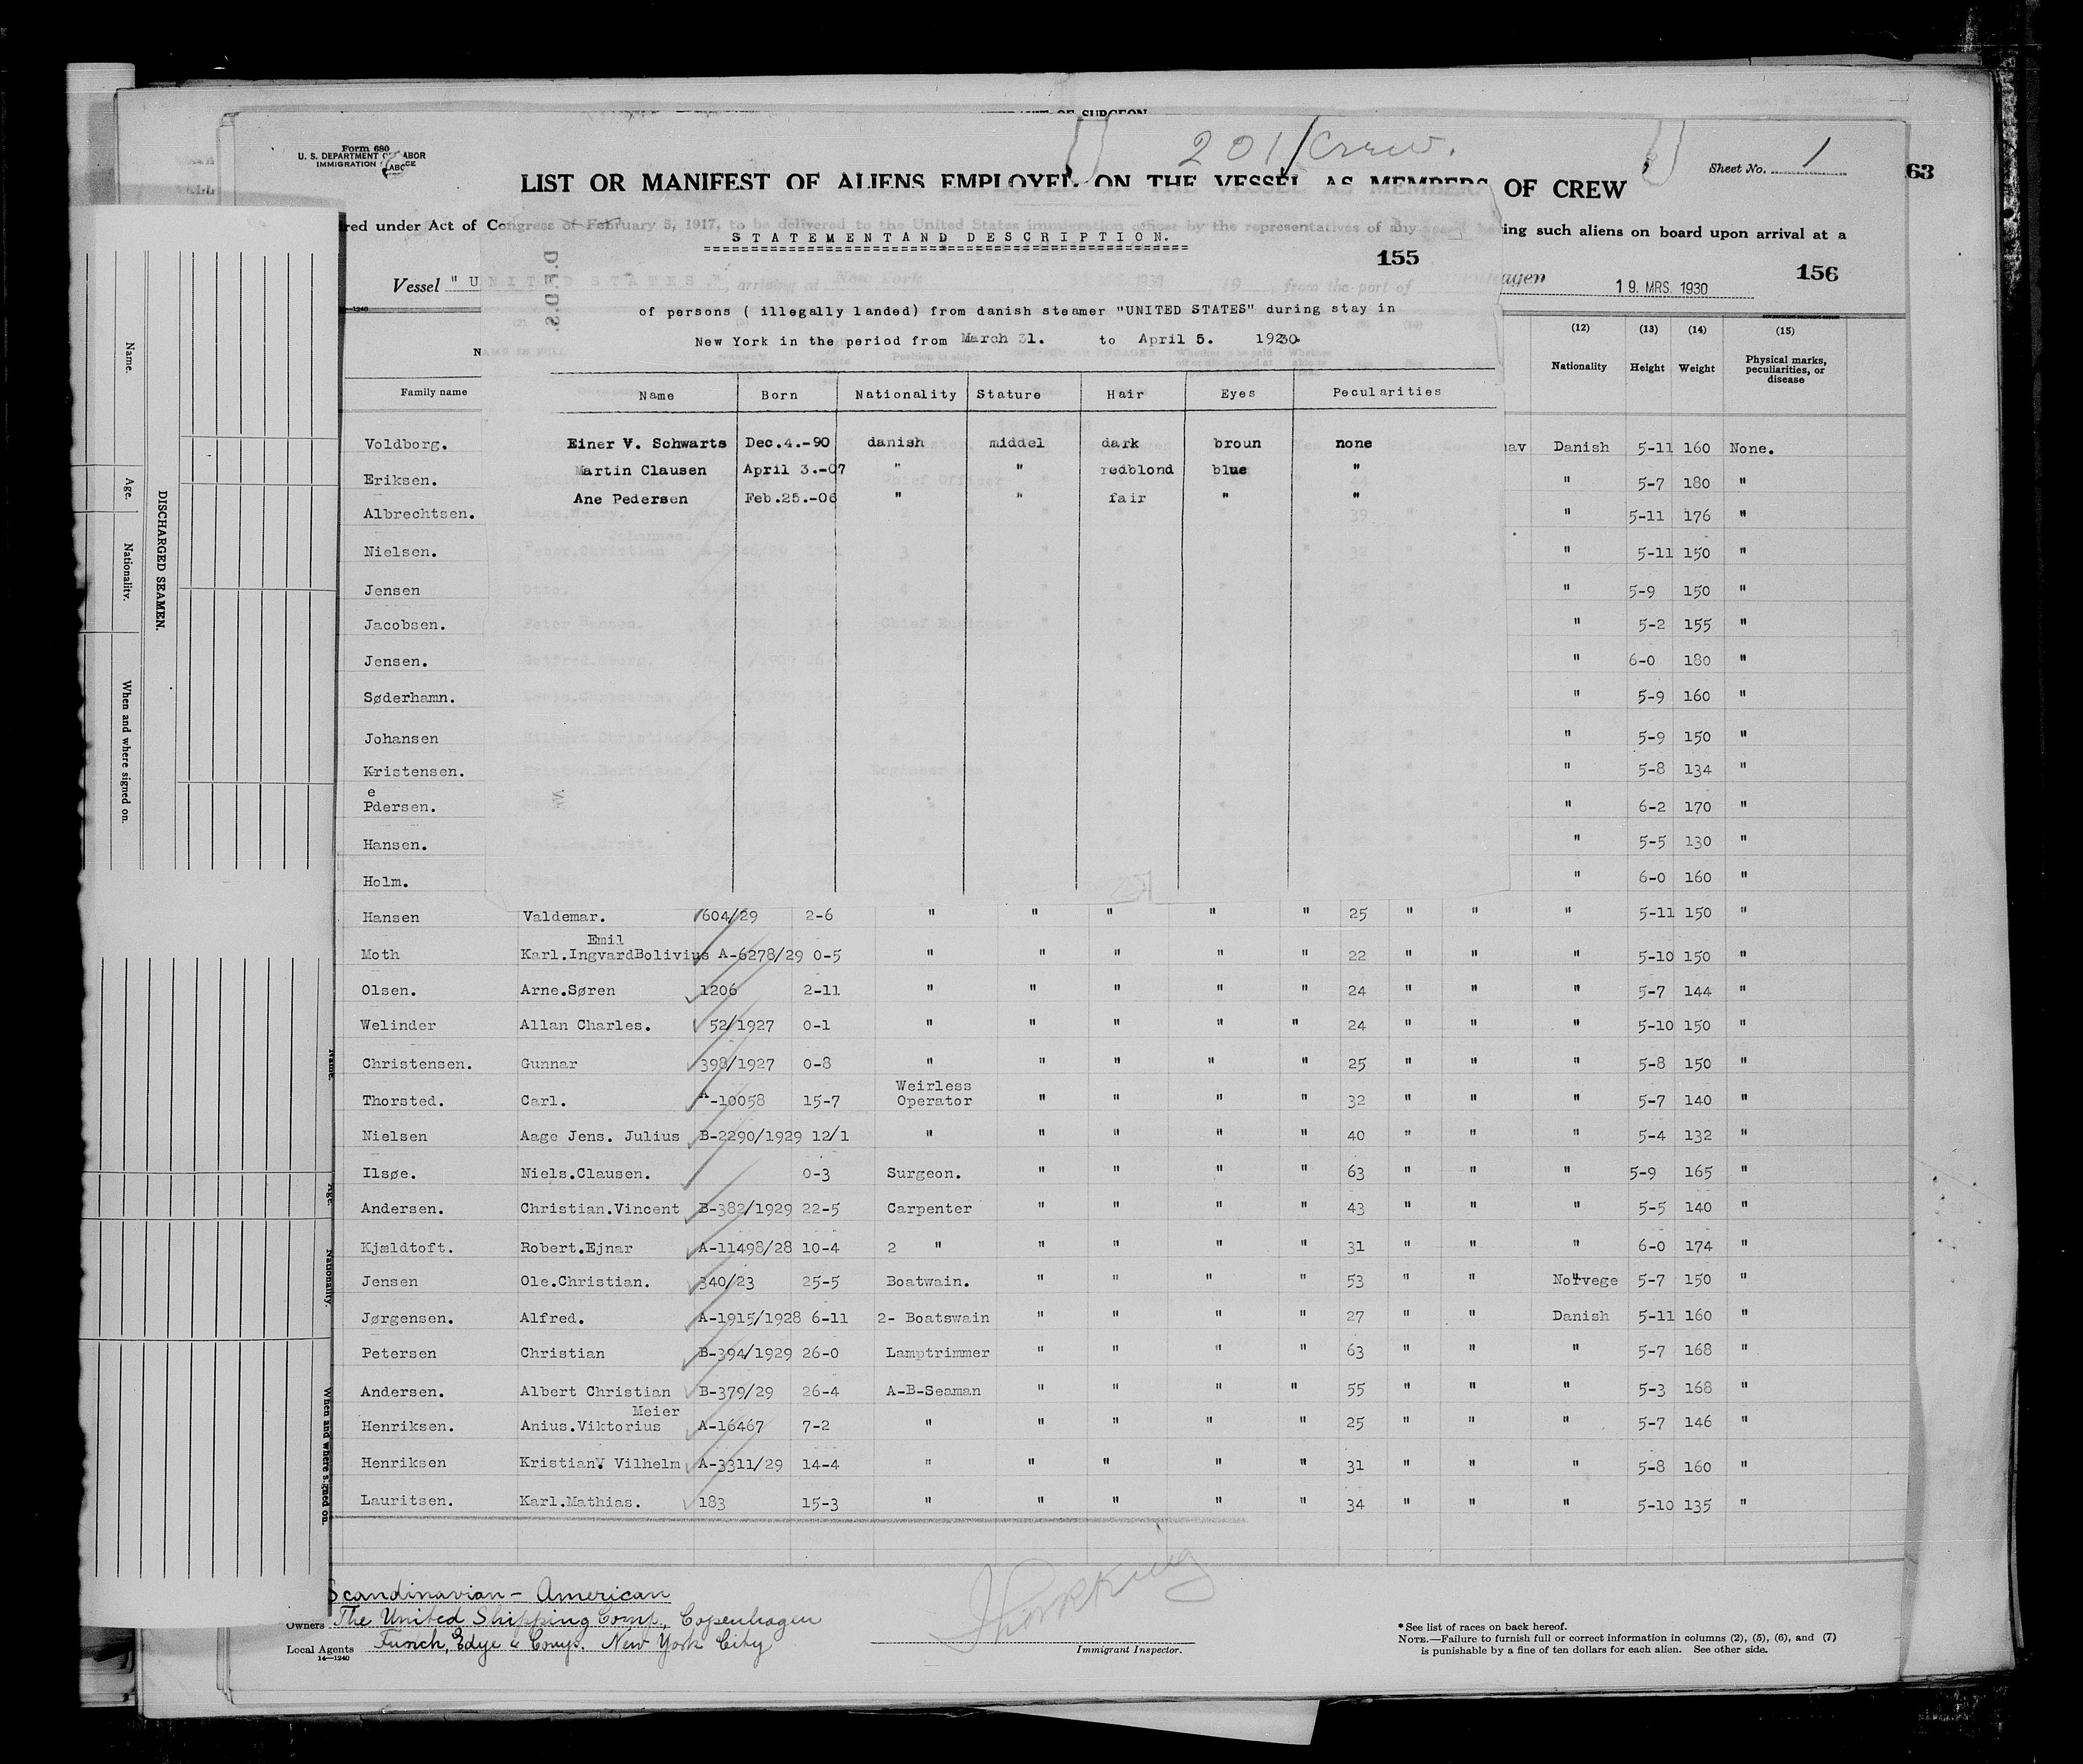 OF SURGEON
Form 680
U. S. DEPARTMENT OF LABOR
IMMIGRATION
201/Crew.
Sheet No. 1
63
LIST OR MANIFEST OF ALIENS EMPLOYED ON THE VESSEL AS MEMBERS OF CREW
red under Act of Congress of February 5, 1917, to be delivered to the United States immigration officer by the representatives of any
ing such aliens on board upon arrival at a
STATEMENT AND DESCRIPTION.
155
156
Vessel "UNITED STATES.", arriving at New York, 19 , from the port of
agen 19. MRS. 1930
D.F.D.S.
of persons ( illegally landed) from danish steamer "UNITED STATES" during stay in
New York in the period from March 31. to April 5. 1930.
Name Born Nationality Stature Hair Eyes Pecularities
Einer V. Schwarts Dec.4.-90 danish middel dark broun none
Martin Clausen April 3.-07 " " redblond blue "
Ane Pedersen Feb.25.-06 " " fair " "
(12) (13) (14) (15)
Family name Nationality Height Weight Physical marks, peculiarities, or disease
Voldborg. nav Danish 5-11 160 None.
Eriksen. " 5-7 180 "
Albrechtsen. " 5-11 176 "
Nielsen. " 5-11 150 "
Jensen " 5-9 150 "
Jacobsen. " 5-2 155 "
Jensen. " 6-0 180 "
Søderhamn. " 5-9 160 "
Johansen " 5-9 150 "
Kristensen. " 5-8 134 "
e
Pdersen. " 6-2 170 "
Hansen. " 5-5 130 "
Holm. " 6-0 160 "
Hansen Valdemar. 604/29 2-6 " " " " " 25 " " " 5-11 150 "
Emil
Moth Karl.IngvardBolivius A-6278/29 0-5 " " " " " 22 " " " 5-10 150 "
Olsen. Arne.Søren 1206 2-11 " " " " " 24 " " " 5-7 144 "
Welinder Allan Charles. 52/1927 0-1 " " " " " 24 " " " 5-10 150 "
Christensen. Gunnar 398/1927 0-8 " " " " " 25 " " " 5-8 150 "
Weirless
Thorsted. Carl. A-10058 15-7 Operator " " " " 32 " " " 5-7 140 "
Nielsen Aage Jens. Julius B-2290/1929 12/1 " " " " " 40 " " " 5-4 132 "
Ilsøe. Niels.Clausen. 0-3 Surgeon. " " " " 63 " " " 5-9 165 "
Andersen. Christian.Vincent B-382/1929 22-5 Carpenter " " " " 43 " " " 5-5 140 "
Kjældtoft. Robert.Ejnar A-11498/28 10-4 2 " " " " " 31 " " " 6-0 174 "
Jensen Ole.Christian. 340/23 25-5 Boatwain. " " " " 53 " " Norvege 5-7 150 "
Jørgensen. Alfred. A-1915/1928 6-11 2- Boatswain " " " " 27 " " Danish 5-11 160 "
Petersen Christian B-394/1929 26-0 Lamptrimmer " " " " 63 " " " 5-7 168 "
Andersen. Albert Christian B-379/29 26-4 A-B-Seaman " " " " 55 " " " 5-3 168 "
Meier
Henriksen. Anius.Viktorius A-16467 7-2 " " " " " 25 " " " 5-7 146 "
Henriksen Kristian. Vilhelm A-3311/29 14-4 " " " " " 31 " " " 5-8 160 "
Lauritsen. Karl.Mathias. 183 15-3 " " " " " 34 " " " 5-10 135 "
Scandinavian - American
Owners The United Shipping Comp., Copenhagen
Local Agents Funch, Edye & Comp. New York City
14—1240
Immigrant Inspector.
* See list of races on back hereof.
NOTE.—Failure to furnish full or correct information in columns (2), (5), (6), and (7)
is punishable by a fine of ten dollars for each alien. See other side.
DISCHARGED SEAMEN.
Name.
Age.
Nationality.
When and where signed on.
Name.
Age.
Nationality.
When and where signed on.